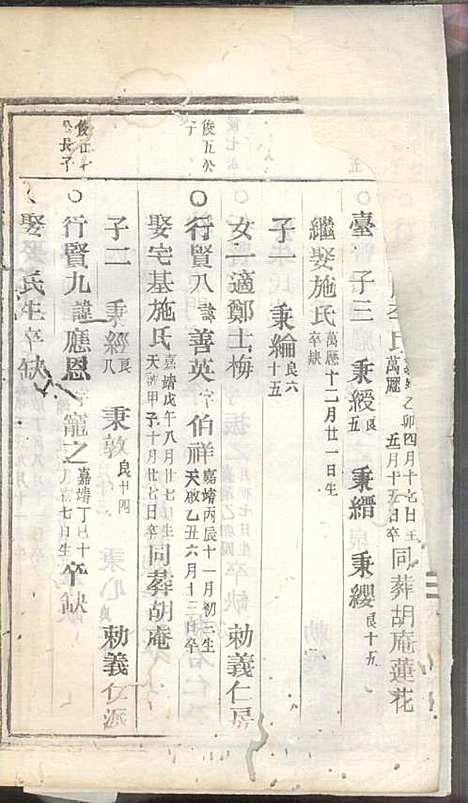 李氏萬曆乙卯四月十七日五月十五日卒同葬胡庵蓮花
臺 子三 秉綬良五 秉縉 秉纓良十五
繼娶施氏萬曆十二月廿一日生卒缺
子一 秉綸良六十五
女一適鄭士梅 勅義仁房
俊五公子
○行賢八諱善英字伯祥嘉靖丙辰十一月初三生天啟乙丑六月十二日卒
娶宅基施氏嘉靖戊午八月廿七生天啟甲子十月廿七日卒同葬胡庵
子二 秉經良八 秉敦良廿四 勅義仁派
長子
○行賢九諱應恩字寵之嘉靖丁巳十月初七日生卒缺
娶 氏生卒缺